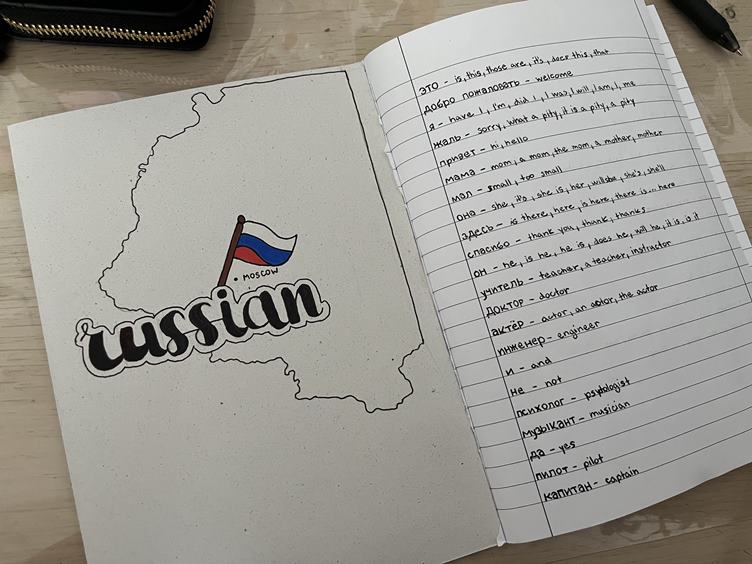 MOSCOW
russian
это - is, this, those are, it's, does this, that
добро пожаловать - welcome
я - have I, I'm, did I, I was, I will, I am, I, me
жаль - sorry, what a pity, it is a pity, a pity
привет - hi, hello
мама - mom, a mom, the mom, a mother, mother
мал - small, too small
она - she, it's, she is, her, will she, she's, she'll
здесь - is there, here, is here, there is... here
спасибо - thank you, thank, thanks
он - he, is he, he is, does he, will he, it is, is it
учитель - teacher, a teacher, instructor
доктор - doctor
актёр - actor, an actor, the actor
инженер - engineer
и - and
не - not
психолог -
музыкант - musician
да - yes
пилот - pilot
капитан - captain